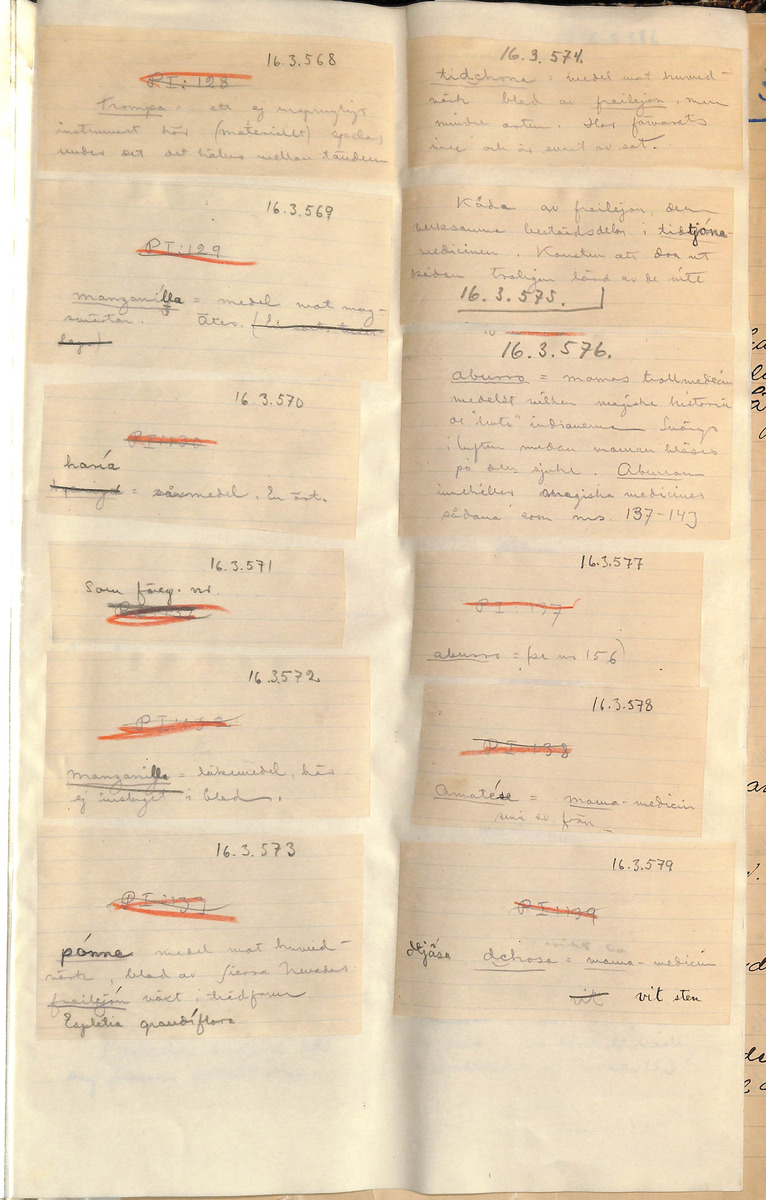 16.3.568
PI:128
Trompa: ett ej ursprungligt
instrument här (materialet) spelas
under det det hålles mellan tänderna
16.3.569
PI:129
manzanilla = medel mot mag-
smärtor. Ätes.
16.3.570
PI:130
hanía
= sårmedel. En ört.
16.3.571
Som föreg. nr
PI:131
16.3.572
PI:132
manzanilla = läkemedel, här
ej inslaget i blad.
16.3.573
PI:133
pónne medel mot huvud-
värk, blad av Sierra Nevadas
frailejón växt i trädform
Espletia grandiflora
16.3.574.
tidchona: medel mot huvud-
värk blad av frailejón, men
mindre arten. Har förvarats
inne och är svart av sot.
Kåda av frailejon, den
verksamma beståndsdelen i tidtjóna-
medicinen. Konsten att dra ut
kådan troligen lärd av de vite
16.3.575.
16.3.576.
aburro = mamas trollmedicin
medelst vilken magiska historia
de "bota" indianerna. Svängs
i luften medan maman blåses
på den sjuke. Aburron
innehåller magiska mediciner
sådana som nrs 137-143
16.3.577
PI:137
aburro = (se nr 156)
16.3.578
PI:138
Amatése = mama-medicin
små se frön
16.3.579
PI:139
dtjåsa dchosa = mama-medicin
vit vit sten